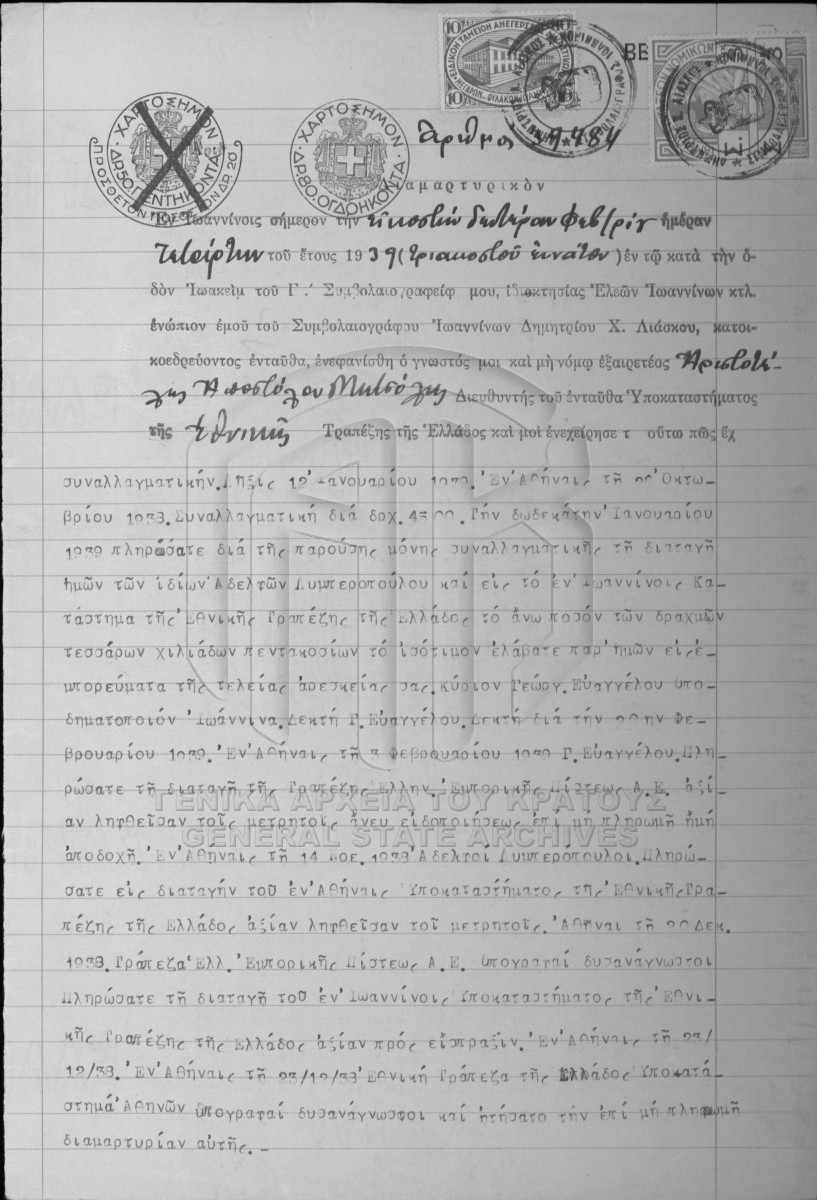 ΧΑΡΤΟΣΗΜΟΝ
ΔΡ.50 ΠΕΝΤΗΚΟΝΤΑ
ΠΡΟΣΘΕΤΟΝ ΔΡ.20
ΧΑΡΤΟΣΗΜΟΝ
ΔΡ.80. ΟΓΔΟΗΚΟΝΤΑ
10 10
10 10
ΒΕ
Ἀριθμός 19484
Διαμαρτυρικὸν
Ἐν Ἰωαννίνοις σήμερον τὴν εἰκοστὴν δευτέραν Φεβ/ρίου ἡμέραν
Τετάρτην τοῦ ἔτους 1939 (τριακοστοῦ ἐννάτου) ἐν τῷ κατὰ τὴν ὁ-
δὸν Ἰωακεὶμ τοῦ Γ.΄ Συμβολαιογραφείῳ μου, ἰδιοκτησίας Ἐλεῶν Ἰωαννίνων κτλ.
ἐνώπιον ἐμοῦ τοῦ Συμβολαιογράφου Ἰωαννίνων Δημητρίου Χ. Λιάσκου, κατοι-
κοεδρεύοντος ἐνταῦθα, ἐνεφανίσθη ὁ γνωστός μοι καὶ μὴ νόμῳ ἐξαιρετέος Ἀριστοτέ-
λης Ἀποστόλου Μητσόλης Διευθυντής τοῦ ἐνταῦθα Ὑποκαταστήματος
τῆς Ἐθνικῆς Τραπέζης τῆς Ἑλλάδος καὶ μοὶ ἐνεχείρησε τ οὕτω πῶς ἔχ
συναλλαγματικήν. Λῆξις 12 Ἰανουαρίου 1939. Ἐν Ἀθήναις τῇ 22 Ὀκτω-
βρίου 1938. Συναλλαγματική διά δρχ. 4500. Τήν δωδεκάτην Ἰανουαρίου
1939 πληρώσατε διά τῆς παρούσης μόνης συναλλαγματικῆς τῇ διαταγῇ
ἡμῶν τῶν ἰδίων Ἀδελφῶν Λυμπεροπούλου καί εἰς τό ἐν Ἰωαννίνοις Κα-
τάστημα τῆς Ἐθνικῆς Τραπέζης τῆς Ἑλλάδος τό ἄνω ποσόν τῶν δραχμῶν
τεσσάρων χιλιάδων πεντακοσίων τό ἰσότιμον ἐλάβατε παρ' ἡμῶν εἰς ἐ-
μπορεύματα τῆς τελείας ἀρεσκείας σας. κύριον Γεώργ. Εὐαγγέλου υπο-
δηματοποιόν Ἰωάννινα. Δεκτή Γ. Εὐαγγέλου. Δεκτή διά τήν 22 ην Φε-
βρουαρίου 1939. Ἐν Ἀθήναις τῇ 3 Φεβρουαρίου 1939 Γ. Εὐαγγέλου. Πλη-
ρώσατε τῇ διαταγῇ τῆς Τραπέζης Ἑλλην. Ἐμπορικῆς Πίστεως Α.Ε. ἀξί-
αν ληφθεῖσαν τοῖς μετρητοῖς ἄνευ εἰδοποιήσεως ἐπί μη πληρωμῇ ἤ μή
ἀποδοχῇ. Ἐν Ἀθήναις τῇ 14 Νοε. 1938 Ἀδελφοί Λυμπερόπουλοι. Πληρώ-
σατε εἰς διαταγήν τοῦ ἐν Ἀθήναις Ὑποκαταστήματος τῆς Ἐθνικῆς Τρα-
πέζης τῆς Ἑλλάδος ἀξίαν ληφθεῖσαν τοῖ μετρητοῖς. Ἀθῆναι τῇ 22 Δεκ.
1938. Τράπεζα Ἑλλ. Ἐμπορικῆς Πίστεως Α.Ε. ὑπογραφαί δυσανάγνωστοι
Πληρώσατε τῇ διαταγῇ τοῦ ἐν Ἰωαννίνοις Ὑποκαταστήματος τῆς Ἐθνι-
κῆς Τραπέζης τῆς Ἑλλάδος ἀξίαν πρός εἴσπραξιν. Ἐν Ἀθήναις τῇ 23/
12/38. Ἐν Ἀθήναις τῇ 23/12/38 Ἐθνική Τράπεζα τῆς Ἑλλάδος Ὑποκατά-
στημά Ἀθηνῶν ὑπογραφαί δυσανάγνωσφοι καί ᾐτήσατο τήν ἐπί μή πληρωμῇ
διαμαρτυρίαν αὐτῆς.-
ΓΕΝΙΚΑ ΑΡΧΕΙΑ ΤΟΥ ΚΡΑΤΟΥΣ
GENERAL STATE ARCHIVES